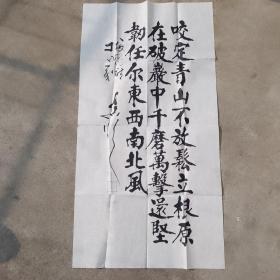 咬定青山不放鬆立根原
在破巖中千磨萬擊還堅
韌任尔東西南北風